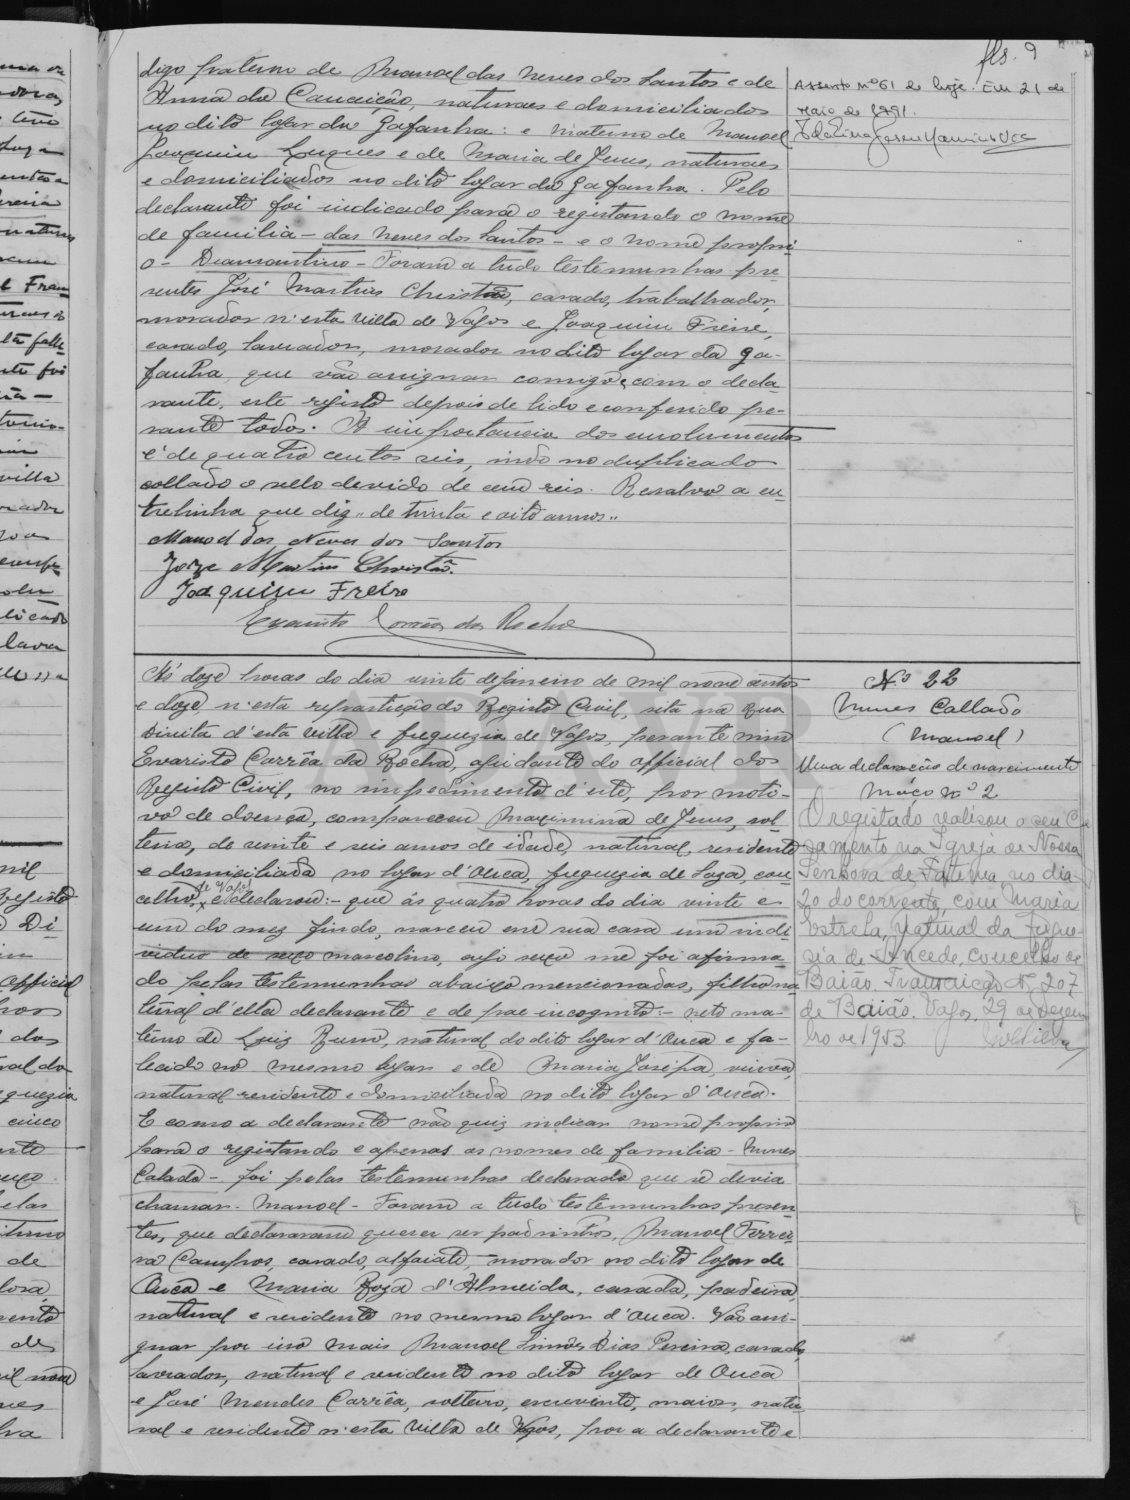 fls. 9
digo paterno de Manoel das Neves dos Santos e de
Anna da Conceição, naturaes e domiciliados
no dito logar da Gafanha: e materno de Manoel
Joaquim Luques e de Maria de Jesus, naturaes
e domiciliados no dito logar da Gafanha. Pelo
declarante foi indicado para o registando o nome
de familia - das Neves dos Santos - e o nome propri-
o - Diamantino - Foram a tudo testemunhas pre-
sentes José Martins Christão, casado, trabalhador,
morador n'esta villa de Vagos e Joaquim Freire,
casado, lavrador, morador no dito logar da Ga-
fanha, que vão assignar comigo, e com o decla-
rante, este registo depois de lido e conferido pe-
rante todos. A importancia dos emolumentos
é de quatro centos reis, indo no duplicado
collado o sello devido de cem reis. Resalvo a en-
trelinha que diz "de trinta e oito annos"
Manoel das Neves dos Santos
Jose Martins Christão.
Joaquim Freire
Evaristo Corrêa da Rocha
Assento nº 61 de hoje. Em 21 de
Maio de 1991.
Às doze horas do dia vinte de Janeiro de mil nove centos
e doze n'esta repartição do Registo Civil, sita na Rua
Direita d'esta villa e freguezia de Vagos, perante mim
Evaristo Corrêa da Rocha, ajudante do official do
Registo Civil, no impedimento d'este, por moti-
vo de doença, compareceu Maximina de Jesus, sol-
teira, de vinte e seis annos de idade, natural, residente
e domiciliada no logar d'Ouca, freguezia de Soza, con-
celho de Vagos e declarou: - que ás quatro horas do dia vinte e
um do mez findo, nasceu em sua casa um indi-
viduo do sexo masculino, cujo sexo me foi afirma-
do pelas testemunhas abaixo mencionadas, filho na-
tural d'ella declarante e de pae incognito: - neto ma-
terno de Luiz Russo, natural do dito logar d'Ouca e fa-
lecido no mesmo logar e de Maria Josefa, viuva,
natural residente e domiciliada no dito logar d'Ouca.
E como a declarante não quiz indicar nome proprio
para o registando e apenas os nomes de familia - Nunes
Calado - foi pelas testemunhas declarado que se devia
chamar - Manoel - Foram a tudo testemunhas presen-
tes, que declararam querer ser padrinhos, Manoel Ferrei-
ra Campos, casado, alfaiate, morador no dito logar de
Ouca e Maria Roza d'Almeida, casada, padeira,
natural e residente no mesmo logar d'Ouca. Vão assi-
gnar por isso mais Manoel Simões Dias Pereira, casado,
lavrador, natural e residente no dito logar de Ouca
e José Mendes Corrêa, solteiro, escrevente, maior, natu-
ral e residente n'esta villa de Vagos, por a declarante e
Nº 22
Nunes Callado
(Manoel)
Uma declaração de nascimento
Maço nº 2
O registado realisou o seu Ca-
samento na Igreja de Nossa
Senhora de Fatima, no dia
20 do corrente, com Maria
Estrela, natural da fregue-
zia de Ancede, concelho de
Baião. Transcrição Nº 207
de Baião. Vagos, 29 de Dezem-
bro de 1953